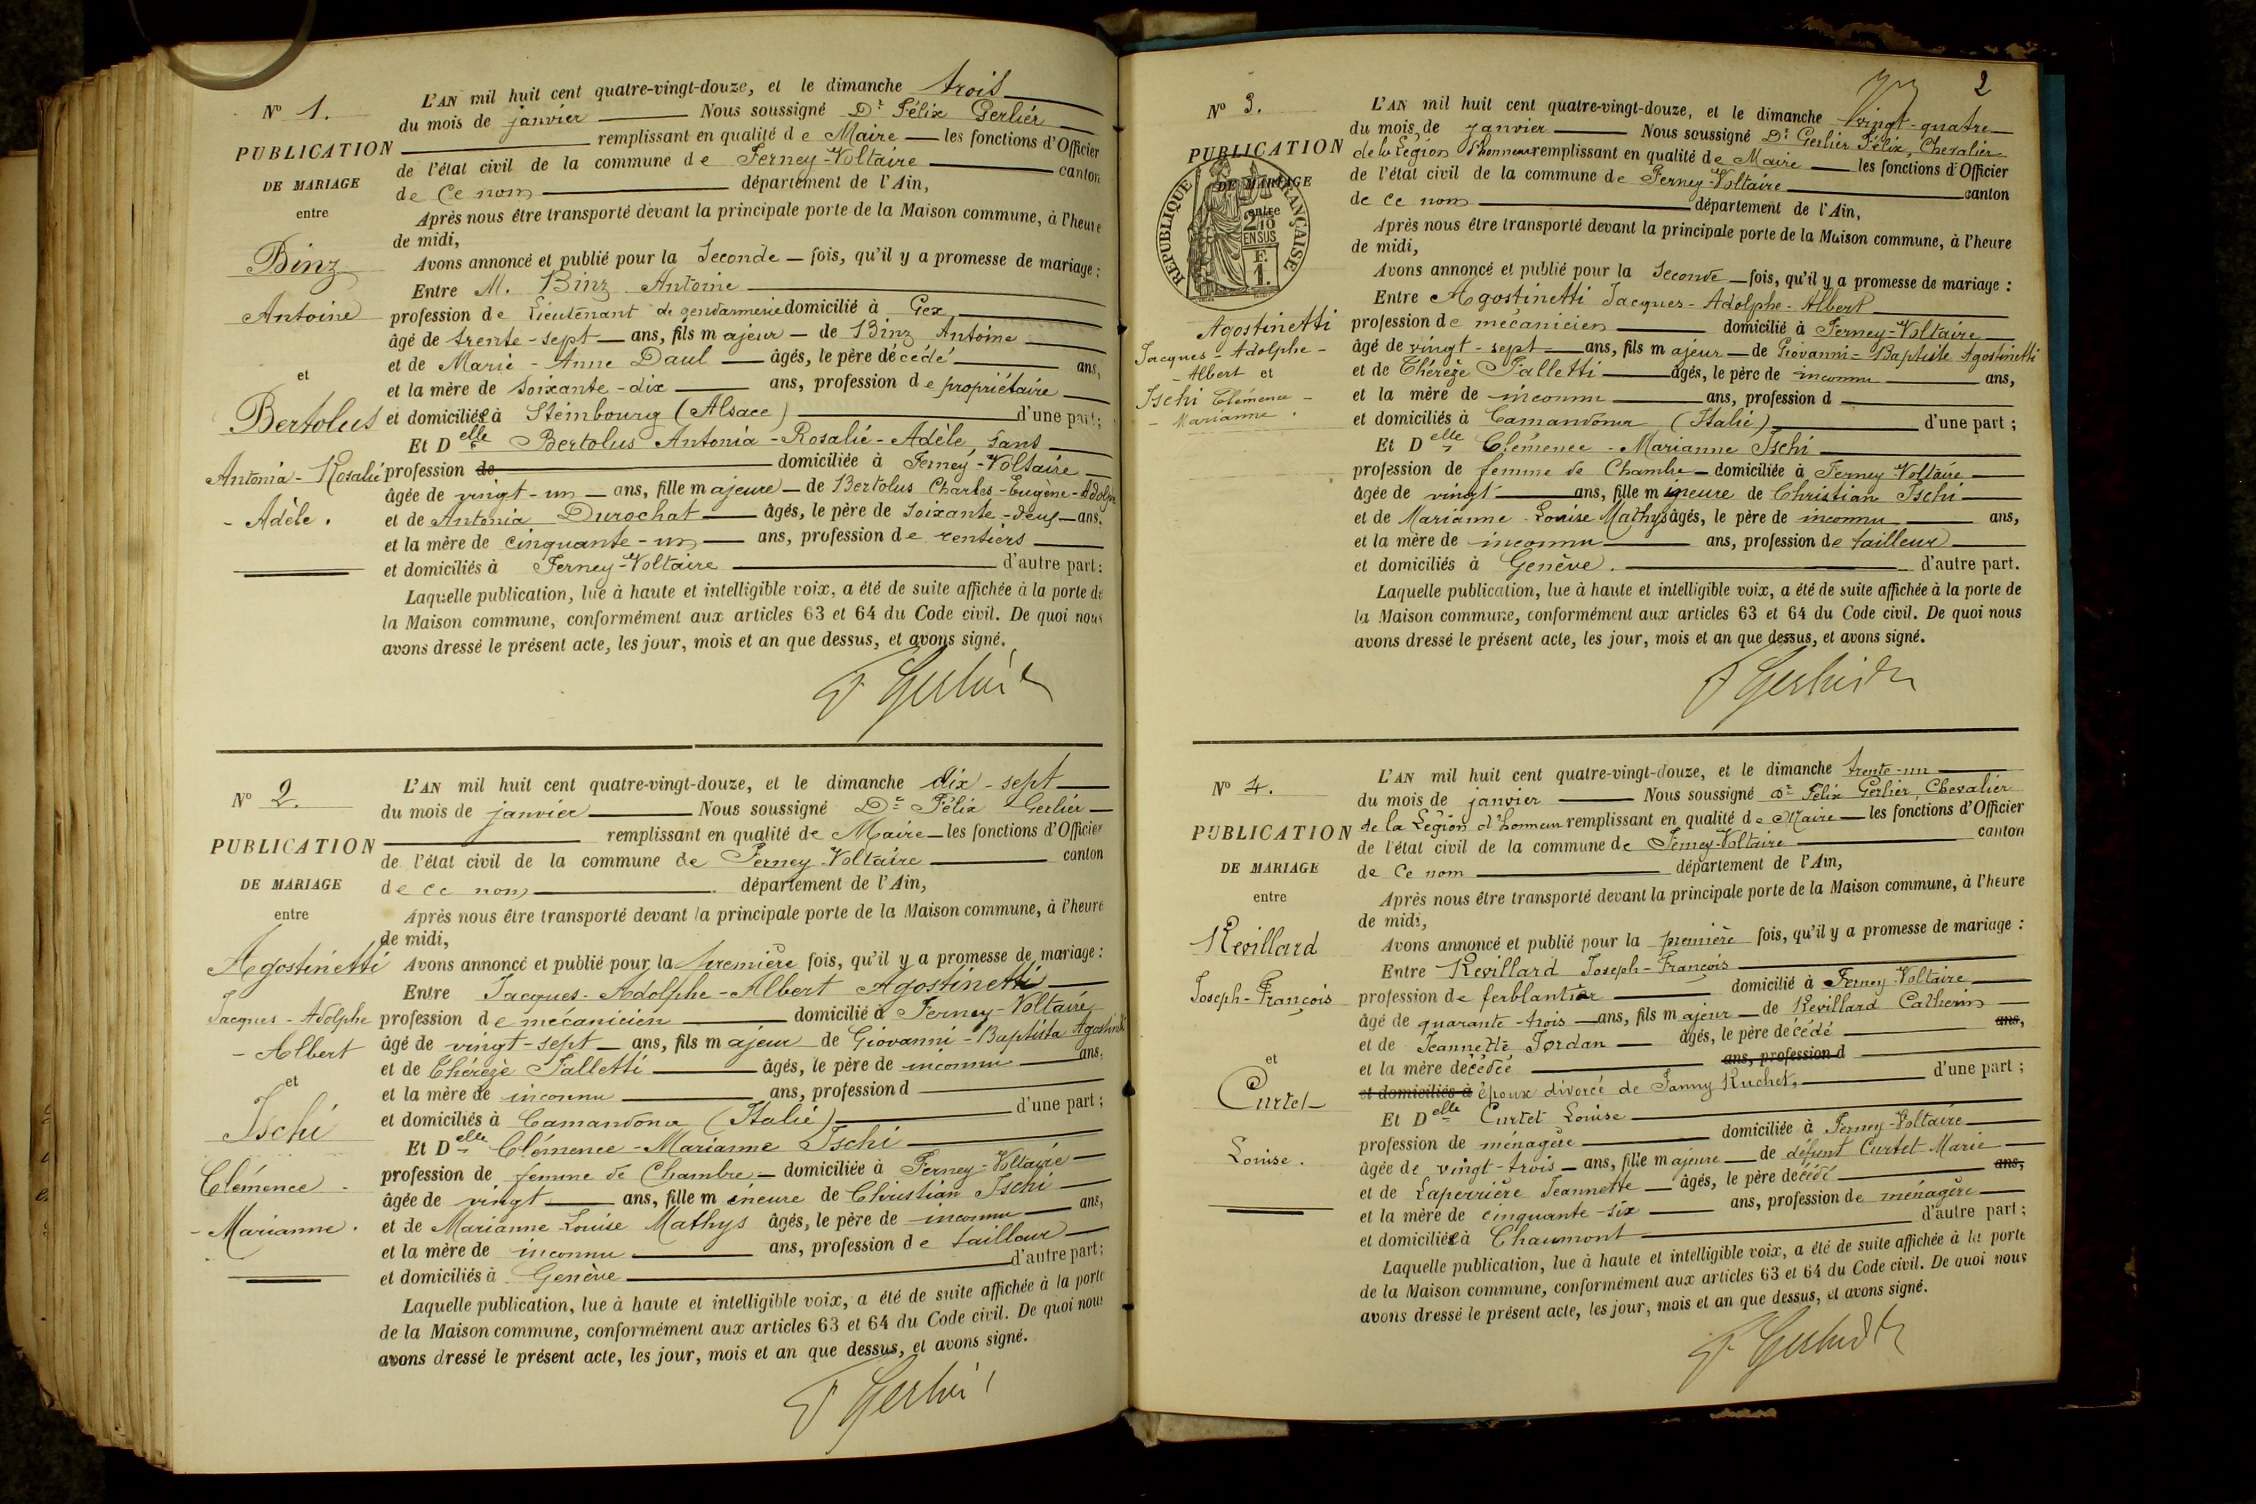 N° 1.
PUBLICATION
DE MARIAGE
entre
Binz
Antoine
et
Bertolus
Antonia - Rosalie
- Adèle.
L'AN mil huit cent quatre-vingt-douze, et le dimanche trois
du mois de janvier Nous soussigné Dr Félix Gerlier
remplissant en qualité de Maire les fonctions d'Officier
de l'état civil de la commune de Ferney-Voltaire canton
de ce nom département de l'Ain,
Après nous être transporté devant la principale porte de la Maison commune, à l'heure
de midi,
Avons annoncé et publié pour la Seconde fois, qu'il y a promesse de mariage :
Entre M. Binz Antoine
profession de Lieutenant de gendarmerie domicilié à Gex
âgé de trente-sept ans, fils majeur de Binz Antoine
et de Marie-Anne Daul âgés, le père décédé ans,
et la mère de soixante-dix ans, profession de propriétaire
et domiciliée à Steinbourg (Alsace) d'une part;
Et Delle Bertolus Antonia-Rosalie-Adèle, sans
profession de domiciliée à Ferney-Voltaire
âgée de vingt-un ans, fille majeure de Bertolus Charles-Eugène-Adolp
et de Antonia Durochat âgés, le père de soixante-deux ans,
et la mère de cinquante-un ans, profession de rentiers
et domiciliés à Ferney-Voltaire d'autre part:
Laquelle publication, lue à haute et intelligible voix, a été de suite affichée à la porte de
la Maison commune, conformément aux articles 63 et 64 du Code civil. De quoi nous
avons dressé le présent acte, les jour, mois et an que dessus, et avons signé.
F Gerlier
N° 2.
PUBLICATION
DE MARIAGE
entre
Agostinetti
Jacques - Adolphe
- Albert
et
Tschi
Clémence -
- Marianne.
L'AN mil huit cent quatre-vingt-douze, et le dimanche dix-sept
du mois de janvier Nous soussigné Dr Félix Gerlier
remplissant en qualité de Maire les fonctions d'Officier
de l'état civil de la commune de Ferney-Voltaire canton
de ce nom département de l'Ain,
Après nous être transporté devant la principale porte de la Maison commune, à l'heure
de midi,
Avons annoncé et publié pour la première fois, qu'il y a promesse de mariage :
Entre Jacques-Adolphe-Albert Agostinetti
profession de mécanicien domicilié à Ferney-Voltaire
âgé de vingt-sept ans, fils majeur de Giovanni-Baptista Agostinetti
et de Thérèze Palletti âgés, le père de inconnu ans,
et la mère de inconnu ans, profession d
et domiciliés à Camandona (Italie) d'une part ;
Et Delle Clémence-Marianne Tschi
profession de femme de Chambre domiciliée à Ferney-Voltaire
âgée de vingt ans, fille mineure de Christian Tschi
et de Marianne Louise Mathys âgés, le père de inconnu ans,
et la mère de inconnu ans, profession de tailleur
et domiciliés à Genève d'autre part;
Laquelle publication, lue à haute et intelligible voix, a été de suite affichée à la porte
de la Maison commune, conformément aux articles 63 et 64 du Code civil. De quoi nous
avons dressé le présent acte, les jour, mois et an que dessus, et avons signé.
F Gerlier
2
N° 3.
PUBLICATION
DE MARIAGE
entre
RÉPUBLIQUE FRANÇAISE
2/10
EN SUS
F.
1.
Agostinetti
Jacques - Adolphe -
- Albert et
Tschi Clémence -
- Marianne.
L'AN mil huit cent quatre-vingt-douze, et le dimanche vingt-quatre
du mois de janvier Nous soussigné Dr Gerlier Félix, Chevalier
de la Légion d'honneur remplissant en qualité de Maire les fonctions d'Officier
de l'état civil de la commune de Ferney-Voltaire canton
de ce nom département de l'Ain,
Après nous être transporté devant la principale porte de la Maison commune, à l'heure
de midi,
Avons annoncé et publié pour la Seconde fois, qu'il y a promesse de mariage :
Entre Agostinetti Jacques-Adolphe-Albert
profession de mécanicien domicilié à Ferney-Voltaire
âgé de vingt-sept ans, fils majeur de Giovanni-Baptiste Agostinetti
et de Thérèze Palletti âgés, le père de inconnu ans,
et la mère de inconnu ans, profession d
et domiciliés à Camandona (Italie) d'une part ;
Et Delle Clémence-Marianne Tschi
profession de femme de Chambre domiciliée à Ferney Voltaire
âgée de vingt ans, fille mineure de Christian Tschi
et de Marianne Louise Mathys âgés, le père de inconnu ans,
et la mère de inconnu ans, profession de tailleur
et domiciliés à Genève. d'autre part.
Laquelle publication, lue à haute et intelligible voix, a été de suite affichée à la porte de
la Maison commune, conformément aux articles 63 et 64 du Code civil. De quoi nous
avons dressé le présent acte, les jour, mois et an que dessus, et avons signé.
F Gerlier Dr
N° 4.
PUBLICATION
DE MARIAGE
entre
Revillard
Joseph-François
et
Curtet
Louise.
L'AN mil huit cent quatre-vingt-douze, et le dimanche trente-un
du mois de janvier Nous soussigné Dr Félix Gerlier Chevalier
de la Légion d'honneur remplissant en qualité de Maire les fonctions d'Officier
de l'état civil de la commune de Ferney-Voltaire canton
de ce nom département de l'Ain,
Après nous être transporté devant la principale porte de la Maison commune, à l'heure
de midi,
Avons annoncé et publié pour la première fois, qu'il y a promesse de mariage :
Entre Revillard Joseph-François
profession de ferblantier domicilié à Ferney-Voltaire
âgé de quarante-trois ans, fils majeur de Revillard Catherin
et de Jeannette Jordan âgés, le père décédé ans,
et la mère décédée ans, profession d
et domiciliés à époux divorcé de Fanny Ruchet, d'une part ;
Et Delle Curtet Louise
profession de ménagère domiciliée à Ferney-Voltaire
âgée de vingt-trois ans, fille majeure de défunt Curtet Marie
et de Laperrière Jeannette âgés, le père décédé ans,
et la mère de cinquante-six ans, profession de ménagère
et domiciliée à Chaumont d'autre part;
Laquelle publication, lue à haute et intelligible voix, a été de suite affichée à la porte
de la Maison commune, conformément aux articles 63 et 64 du Code civil. De quoi nous
avons dressé le présent acte, les jour, mois et an que dessus, et avons signé.
F Gerlier Dr